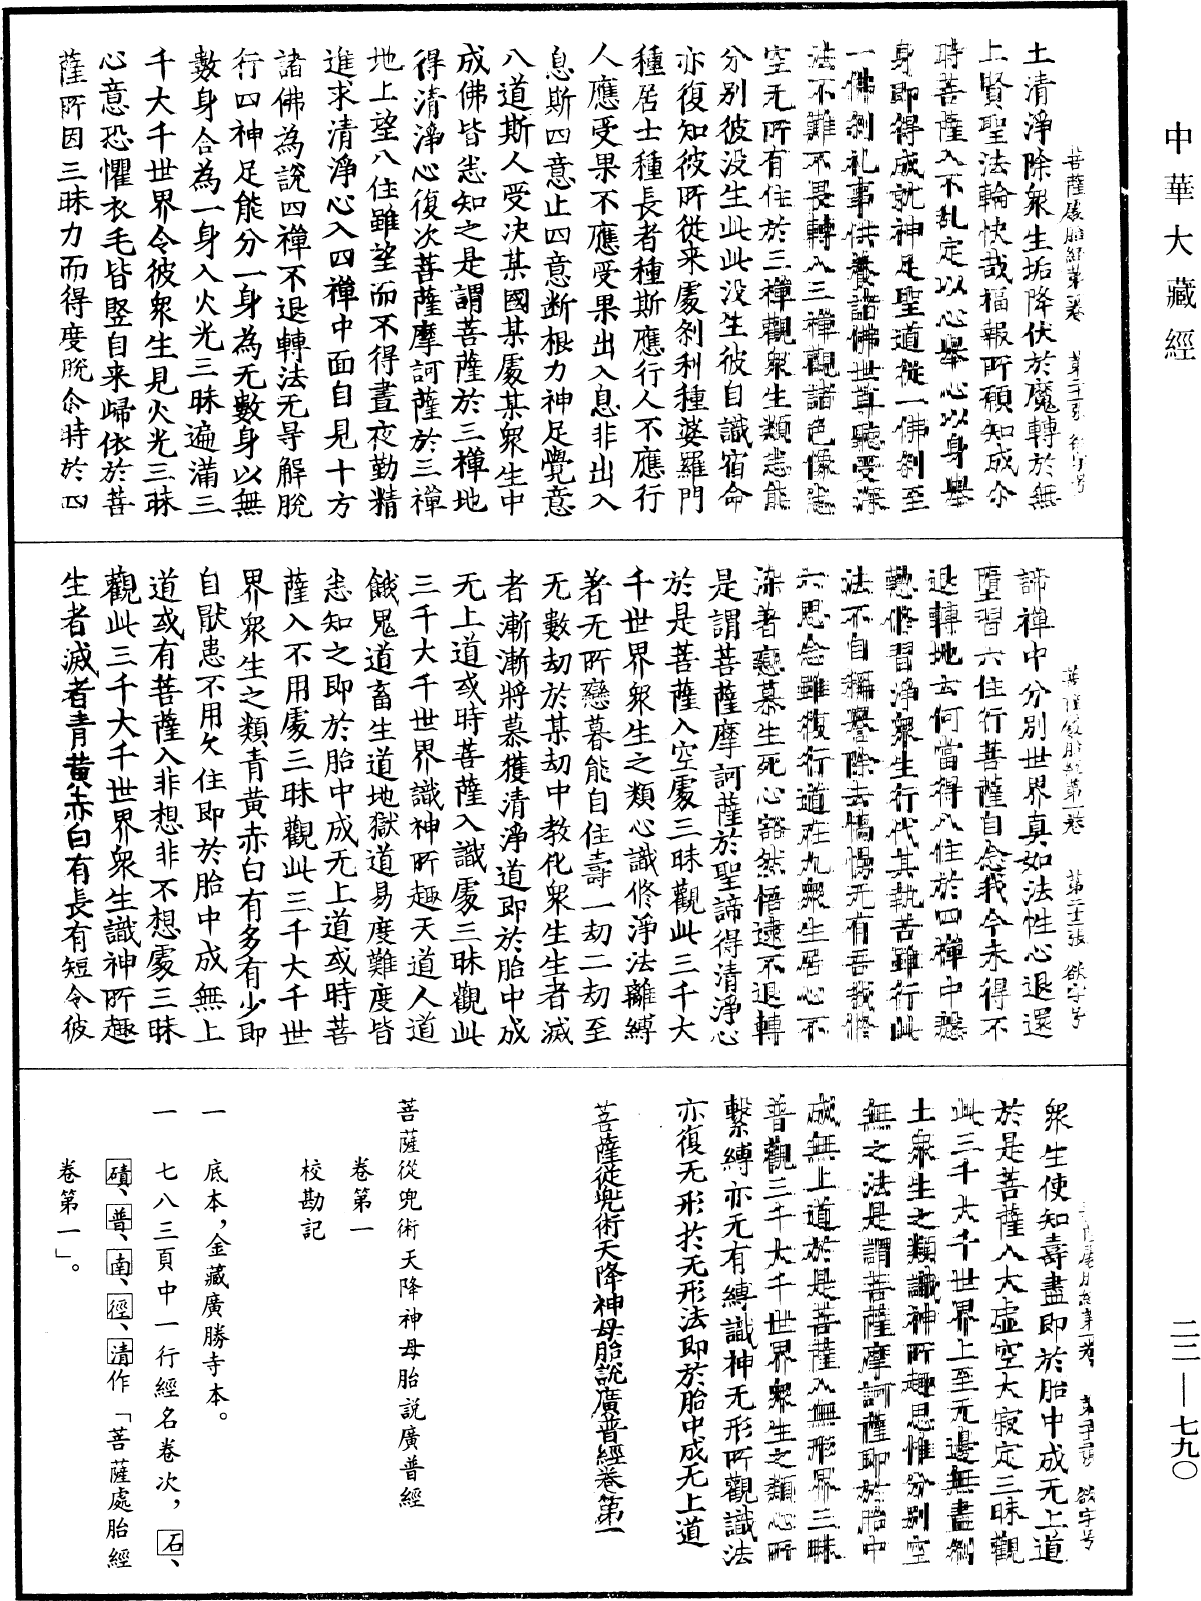 中華大藏經
二二—七九〇
土清淨除衆生垢降伏於魔轉於無
上賢聖法輪快哉福報所願知成尒
時菩薩入不亂定以心舉心以身舉
身即得成就神足聖道從一佛剎至
一佛剎礼事供養諸佛世尊聽受深
法不難不畏轉入三禪觀諸色像悉
空无所有住於三禪觀衆生類悉能
分別彼没生此此没生彼自識宿命
亦復知彼所從来處刹利種婆羅門
種居士種長者種斯應行人不應行
人應受果不應受果出入息非出入
息斯四意止四意断根力神足覺意
八道斯人受決某國某處某衆生中
成佛皆悉知之是謂菩薩於三禪地
得清淨心復次菩薩摩訶薩於三禪
地上望八住雖望而不得晝夜勤精
進求清淨心入四禪中面自見十方
諸佛為說四禪不退轉法无㝵解脫
行四神足能分一身為无數身以無
數身合為一身入火光三昧遍滿三
千大千世界令彼衆生見火光三昧
心意恐懼衣毛皆竪自来歸依於菩
薩所因三昧力而得度脫尒時於四
諦禪中分別世界真如法性心退還
墮習六住行菩薩自念我今未得不
退轉地云何當得八住於四禪中懸
修習淨衆生行代其執苦雖行此
法不自稱譽除去憍慢无有吾我
六思念雖復行道在九衆生居心不
染著戀慕生死心豁然悟達不退轉
是謂菩薩摩訶薩於聖諦得清淨心
於是菩薩入空處三昧觀此三千大
千世界衆生之類心識修淨法離縛
著无所戀暮能自住壽一劫二劫至
无數劫於某劫中教化衆生生者滅
者漸漸將慕獲清淨道即於胎中成
无上道或時菩薩入識處三昧觀此
三千大千世界識神所趣天道人道
餓鬼道畜生道地獄道易度難度皆
悉知之即於胎中成无上道或時菩
薩入不用處三昧觀此三千大千世
界衆生之類青黃赤白有多有少即
自猒患不用久住即於胎中成無上
道或有菩薩入非想非不想處三昧
觀此三千大千世界衆生識神所趣
生者滅者青黃赤白有長有短令彼
衆生使知壽盡即於胎中成无上道
於是菩薩入大虛空大寂定三昧觀
此三千大千世界上至无邊無盡剎
土衆生之類識神所趣思惟分別空
無之法是謂菩薩摩訶薩即於胎中
成無上道於是菩薩入無形界三昧
普觀三千大千世界衆生之類心所
繫縛亦无有縛識神无形所觀識法
亦復无形於无形法即於胎中成无上道
菩薩從兜術天降神母胎說廣普經卷第一
菩薩從兜術天降神母胎説廣普經
卷第一
校勘記
一　底本，金藏廣勝寺本。
一　七八三頁中一行經名卷次，石、
磧、普、南、徑、清作「菩薩處胎經
卷第一」。